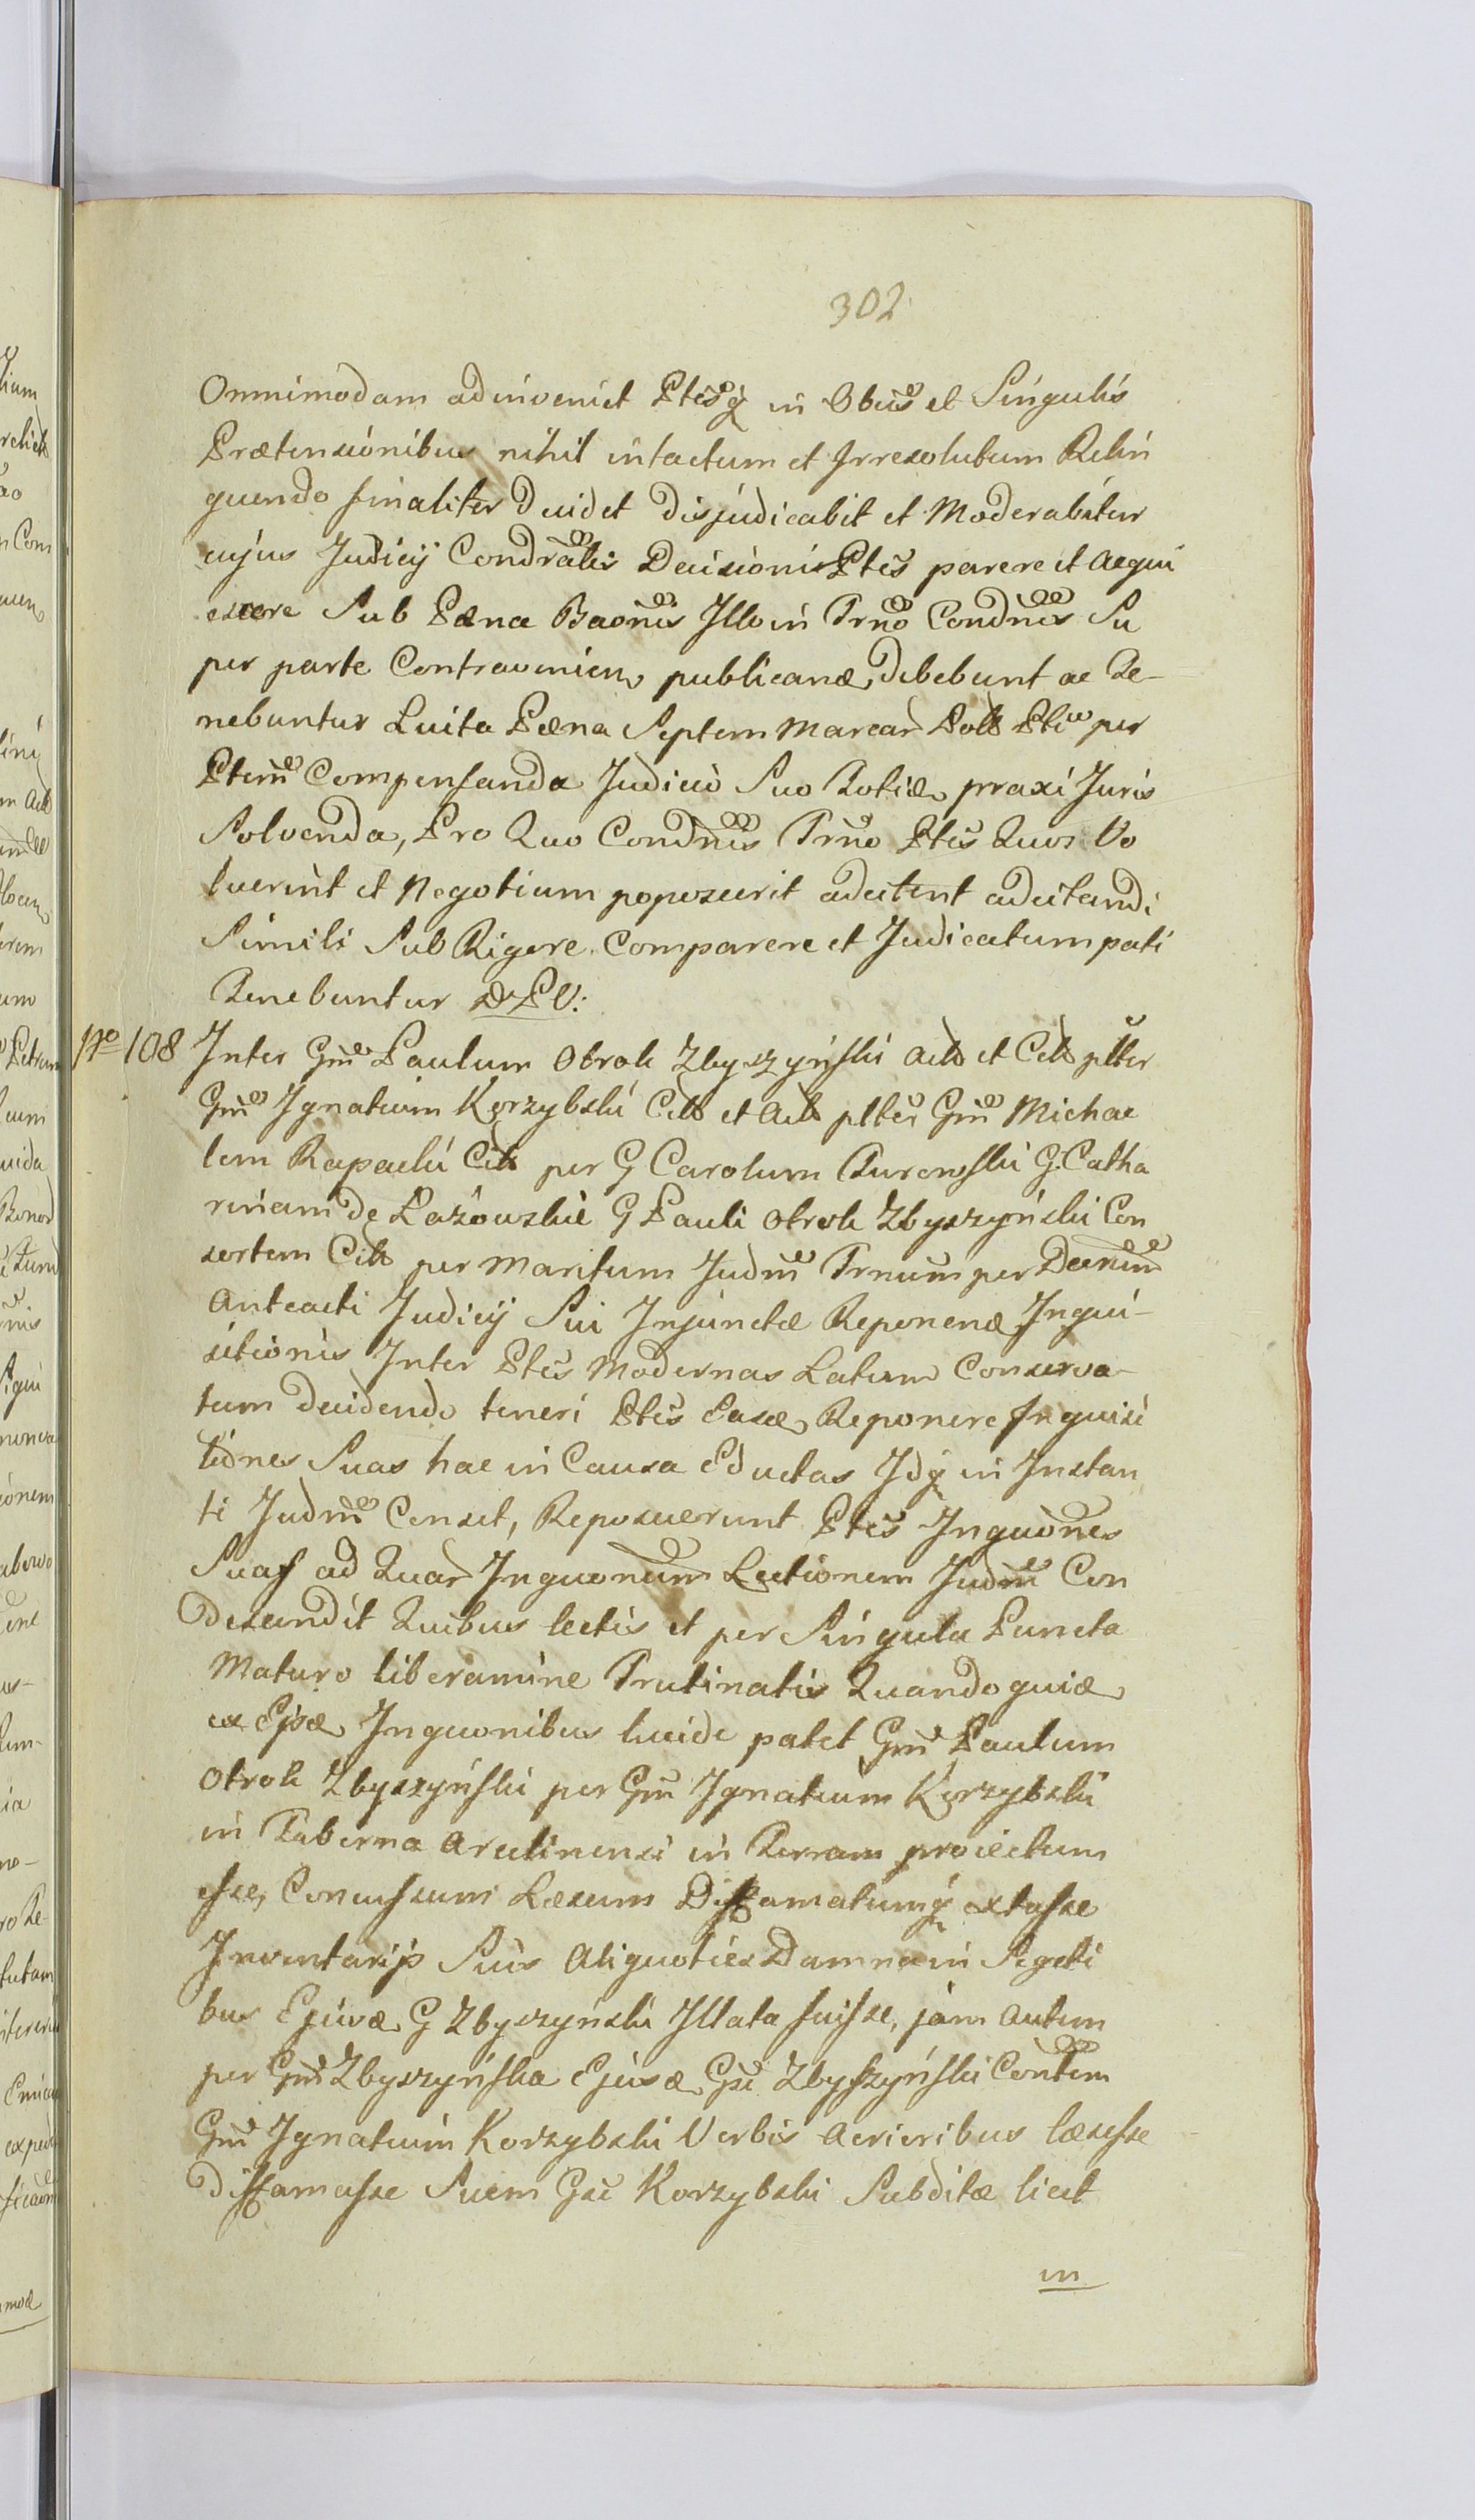 302
Omnimodam adinveniet Ptesq in Obus et Singulis
Prætensionibus nihil intactum et Irresolutum Relin
quendo finaliter Decidet disjudicabit et Moderabitur
cujus Judicij Condralis Decisioni Ptes parere et Acqui
escere Sub Pæna Baonis Illo in Trno Condnis Su
per parte Contravenien publicanæ, debebunt ac Te-
nebuntur Luita Pæna Septem Marcar Poll Pti per
Ptem Compensanda Judicio Suo Totiæ praxi Juris
Solvenda, Pro Quo Condnis Trno Ptes Quos Vo
luerint et Negotium poposcerit adcitent adcitandi
Simili Sub Rigore Comparere et Judicatum pati
Tenebuntur DPV:
No 108 Inter Gm Paulum Otrok Zbyszyński Act et Citt plter
Gm Ignatium Korzybski Citt et Act pltes Gm Michae
lem Rapacki Citt per G Carolum Turowski G. Catha
rinam de Łazowskie G Pauli Otrok Zbyszyński Con
sortem Citt per Maritum Judm Trnum per Decnum
Anteacti Judicij Sui Injunctæ Reponenæ Inqui-
sitionis Inter Ptes Modernas Latum Conserva-
tum decidendo teneri Ptes Easæ, Reponere Inquisi
tiones Suas hac in Causa Eductas Idq in Instan
ti Judm Censet, Reposuerunt Ptes Inquones
Suas ad Quar Inquonum Lectionem Judm Con
descendit Quibus lectis et per Singula Puncta
Maturo liberamine Trutinatis Quandoquiæ
ex Ejsæ, Inquonibus lucide patet Gm Paulum
Otrok Zbyszyński per Gm Ignatium Korzybski
in Taberna Arcelinensi in Terram proiectum
esse, Concussum Læsum Diffamatumq extasse
Inventarijs Suis Aliquoties Damna in Segeti
bus Ejusæ, G Zbyszyński Illata fuisse, jam Autem
per Gm Zbyszyńska Ejusæ, Gsi Zbyszyński Contem
Gm Ignatium Korzybski Verbis Acrioribus læsisse
Diffamasse Suem Gsi Korzybski Subditæ licet
in